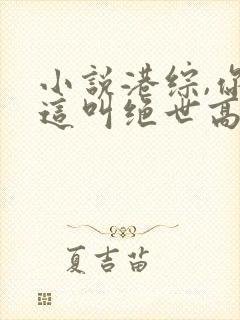 小說港綜,你
這叫绝世高
夏吉苗